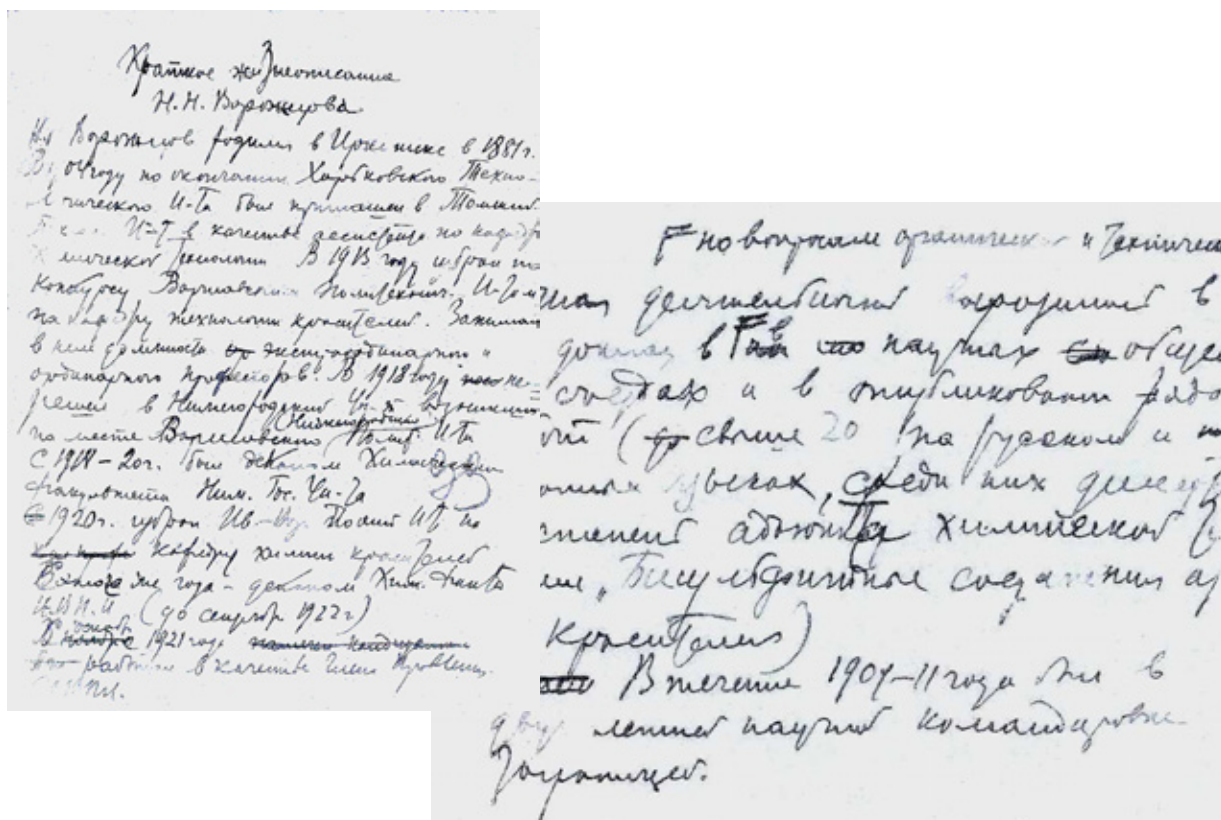 Краткое жизнеописание
Н.Н. Ворожцова.
Ворожцов родился в Иркутске в 1881 г.
В 04 году по окончании Харьковского Техно-
логического И-та был приглашен в Томский
И-т в качестве ассистента по кафедре
Химической технологии В 1913 году избран по
конкурсу Варшавским Политехнич. И-том
на кафедру технологии красителей. Занимал
в нем должность экстраординарного и
ординарного профессоров. В 1918 году пе-
решел в Нижегородский Ун-т возникший
на месте Варшавского (Нижегородского) Политех. И-та
С 1918-20 г. был деканом Химического
факультета Ниж. Гос. Ун-та
С 1920 г. избран Ив-Воз. Полит И-т по
кафедру химии красителей
В этого же года - деканом Хим. Фак-та
И.В.П.И (до сентября 1922 г)
В 1921 года
работал в качестве члена Правления
по вопросам органической и техничес
деятельность выразилась в
доклад в научных обще
съездах и в опубликовании рядо
(свыше 20 на русском и
языках, среди них
адъюнкта химической
"Бисульфитные соединения
красители)
В течение 1909-11 года был в
двух летней научной командировке
Заграницей.